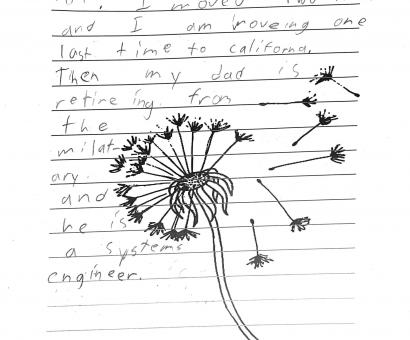 I moved
and I am moveing one
last time to californa.
Then my dad is
retireing from
the
milat
ary.
and
he is
a systems
engineer.